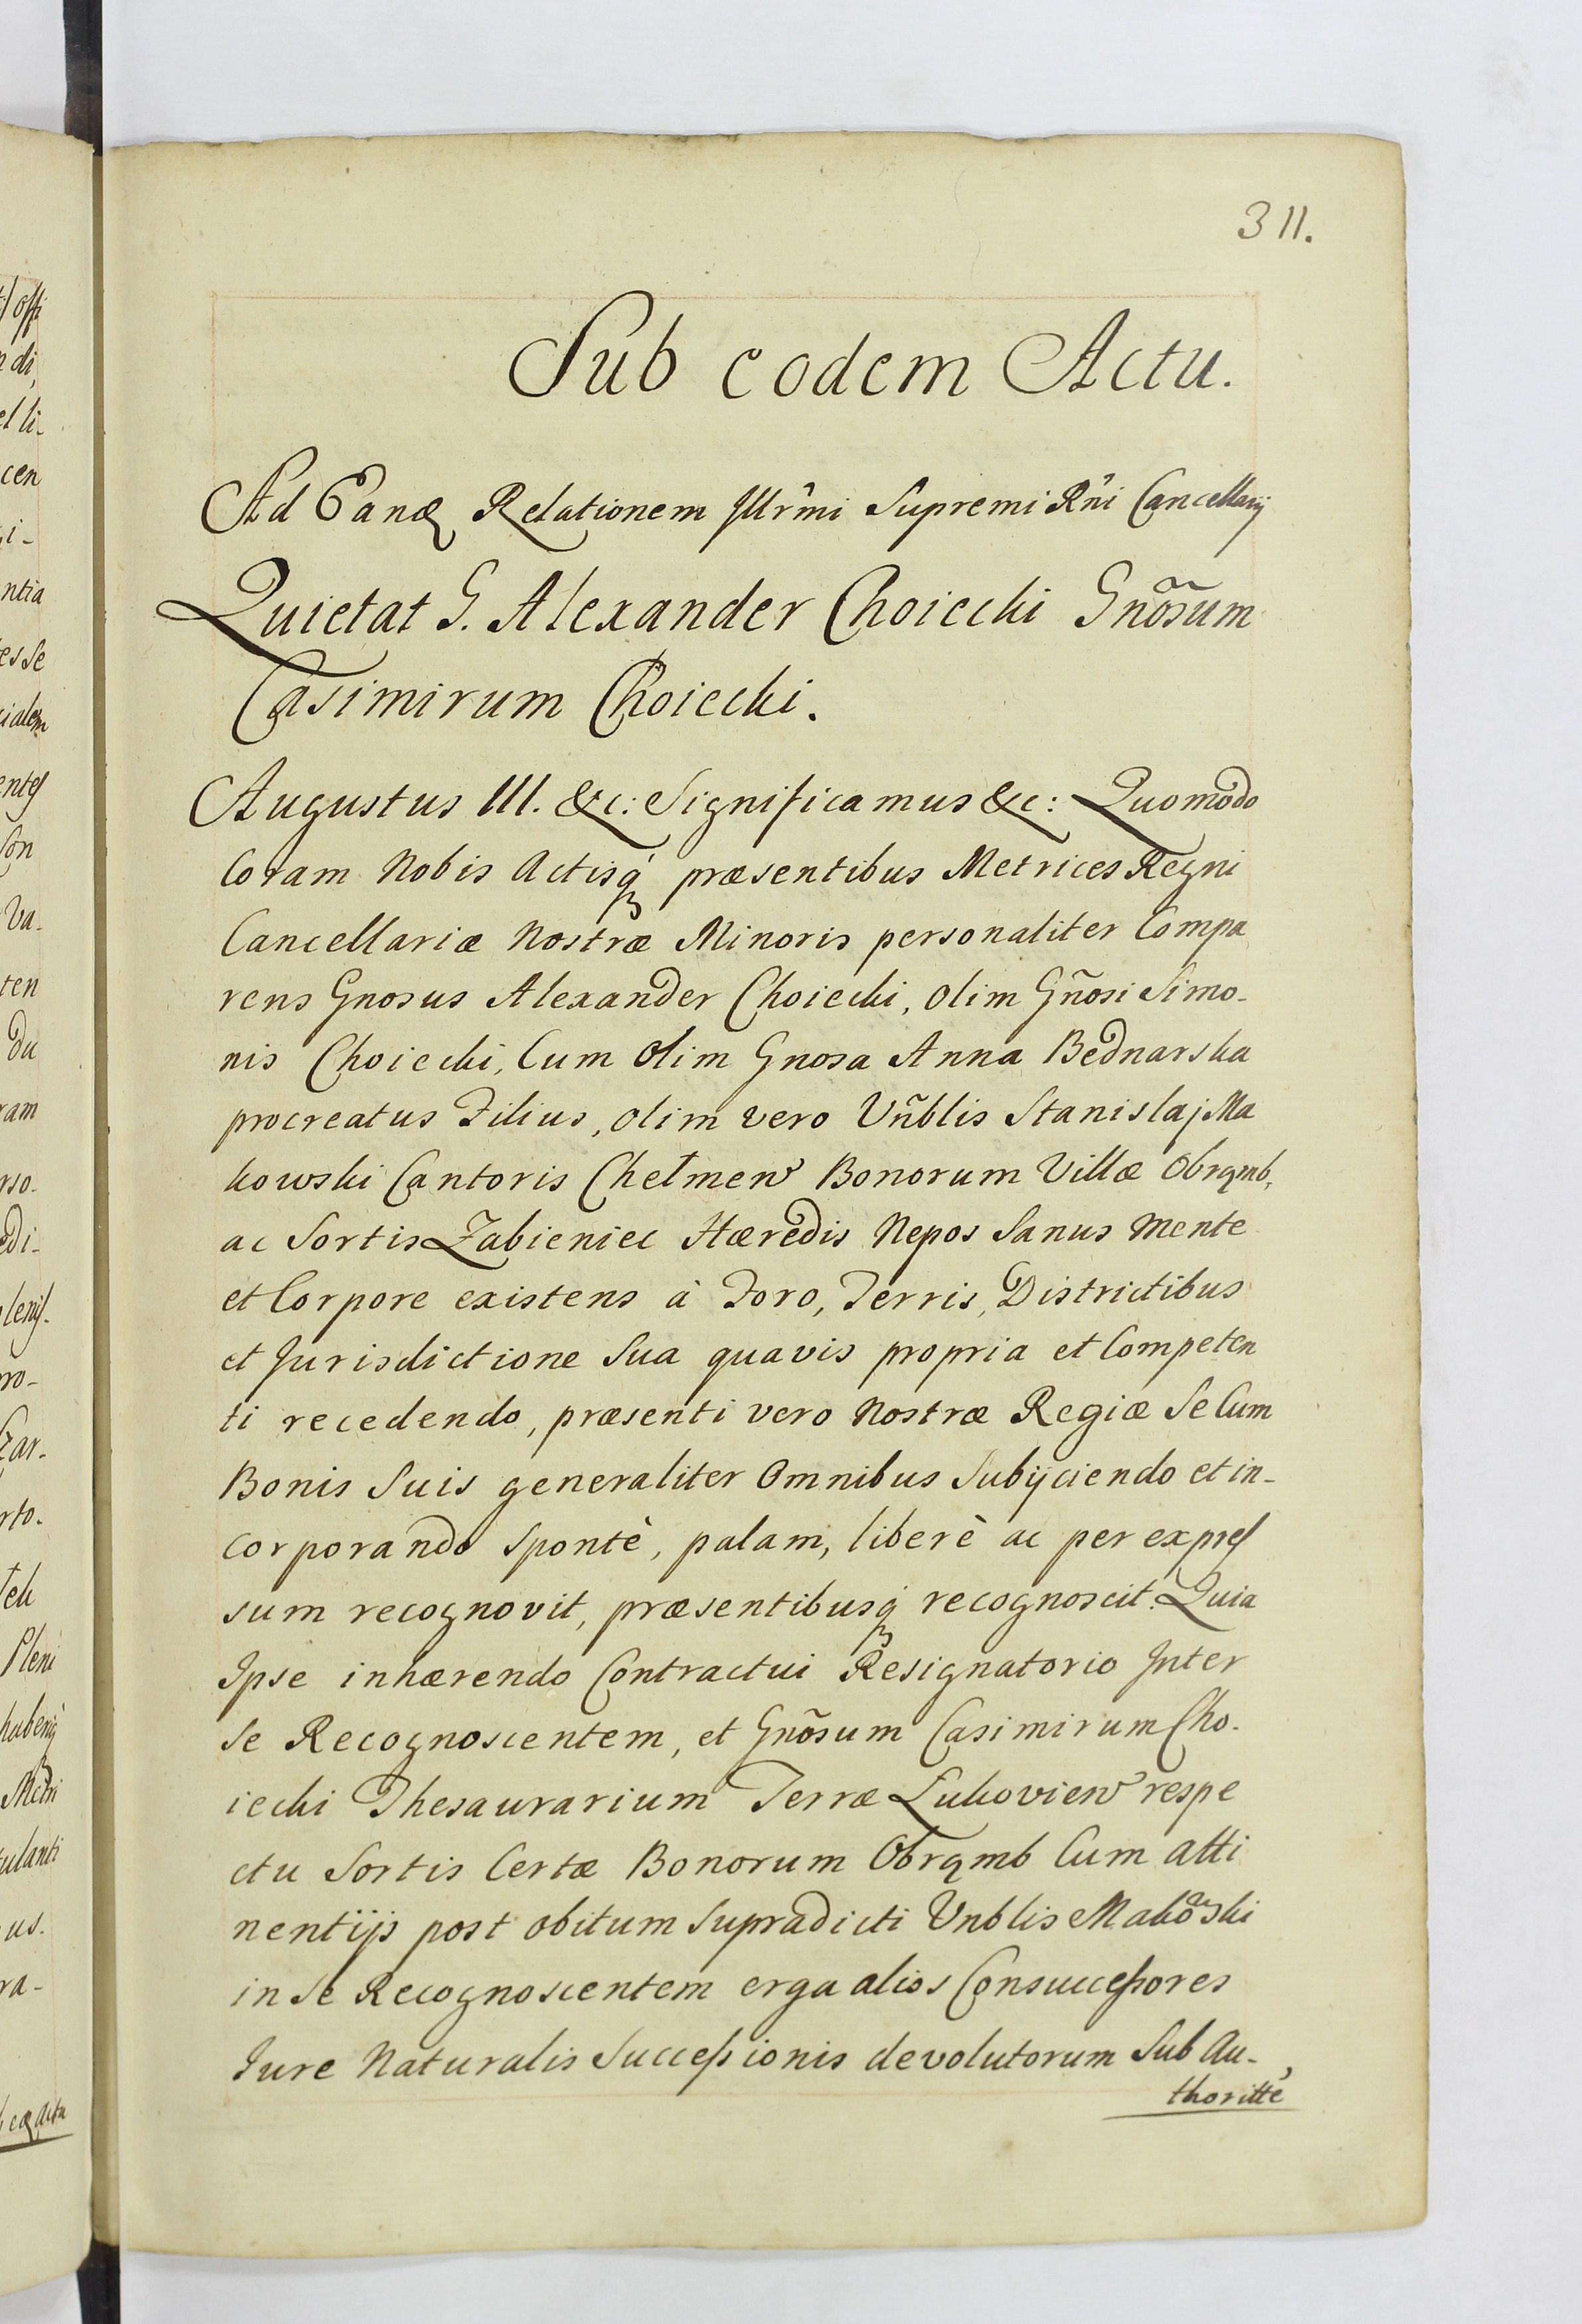 311.
Sub eodem Actu.
Ad Eandem Relationem Illr̃mi Supremi Rñi Cancellarij
Quietat G. Alexander Choiecki Gnõsum
Casimirum Choiecki.
Augustus III. &c: Significamus &c: Quomodo
Coram Nobis Actisq́ præsentibus Metrices Regni
Cancellariæ Nostræ Minoris personaliter Compa
rens Gnosus Alexander Choiecki, Olim Gñosi Simo-
nis Choiecki, Cum Olim Gnosa Anna Bednarska
procreatus Filius, Olim vero Vñblis Stanislaj Ma
kowski Cantoris Chełmen Bonorum Villæ Obrąmb,
ac Sortis Zabieniec Hæredis Nepos Sanus Mente
et Corpore existens à Foro, Terris, Districtibus
et Jurisdictione Sua quavis propria et Competen
ti recedendo, præsenti vero Nostræ Regiæ Se Cum
Bonis Suis generaliter Omnibus Subijciendo et in-
corporando spontè, palam, liberè ac per expres
sum recognovit, præsentibusq́ recognoscit. Quia
Ipse inhærendo Contractui Resignatorio Inter
Se Recognoscentem, et Gnõsum Casimirum Cho-
iecki Thesaurarium Terræ Lukovien respe
ctu Sortis Certæ Bonorum Obrąmb Cum atti
nentijs post obitum Supradicti Vnblis Makõski
in Se Recognoscentem erga alios Consuccessores
Jure Naturalis Successionis devolutorum Sub Au-
thoritte